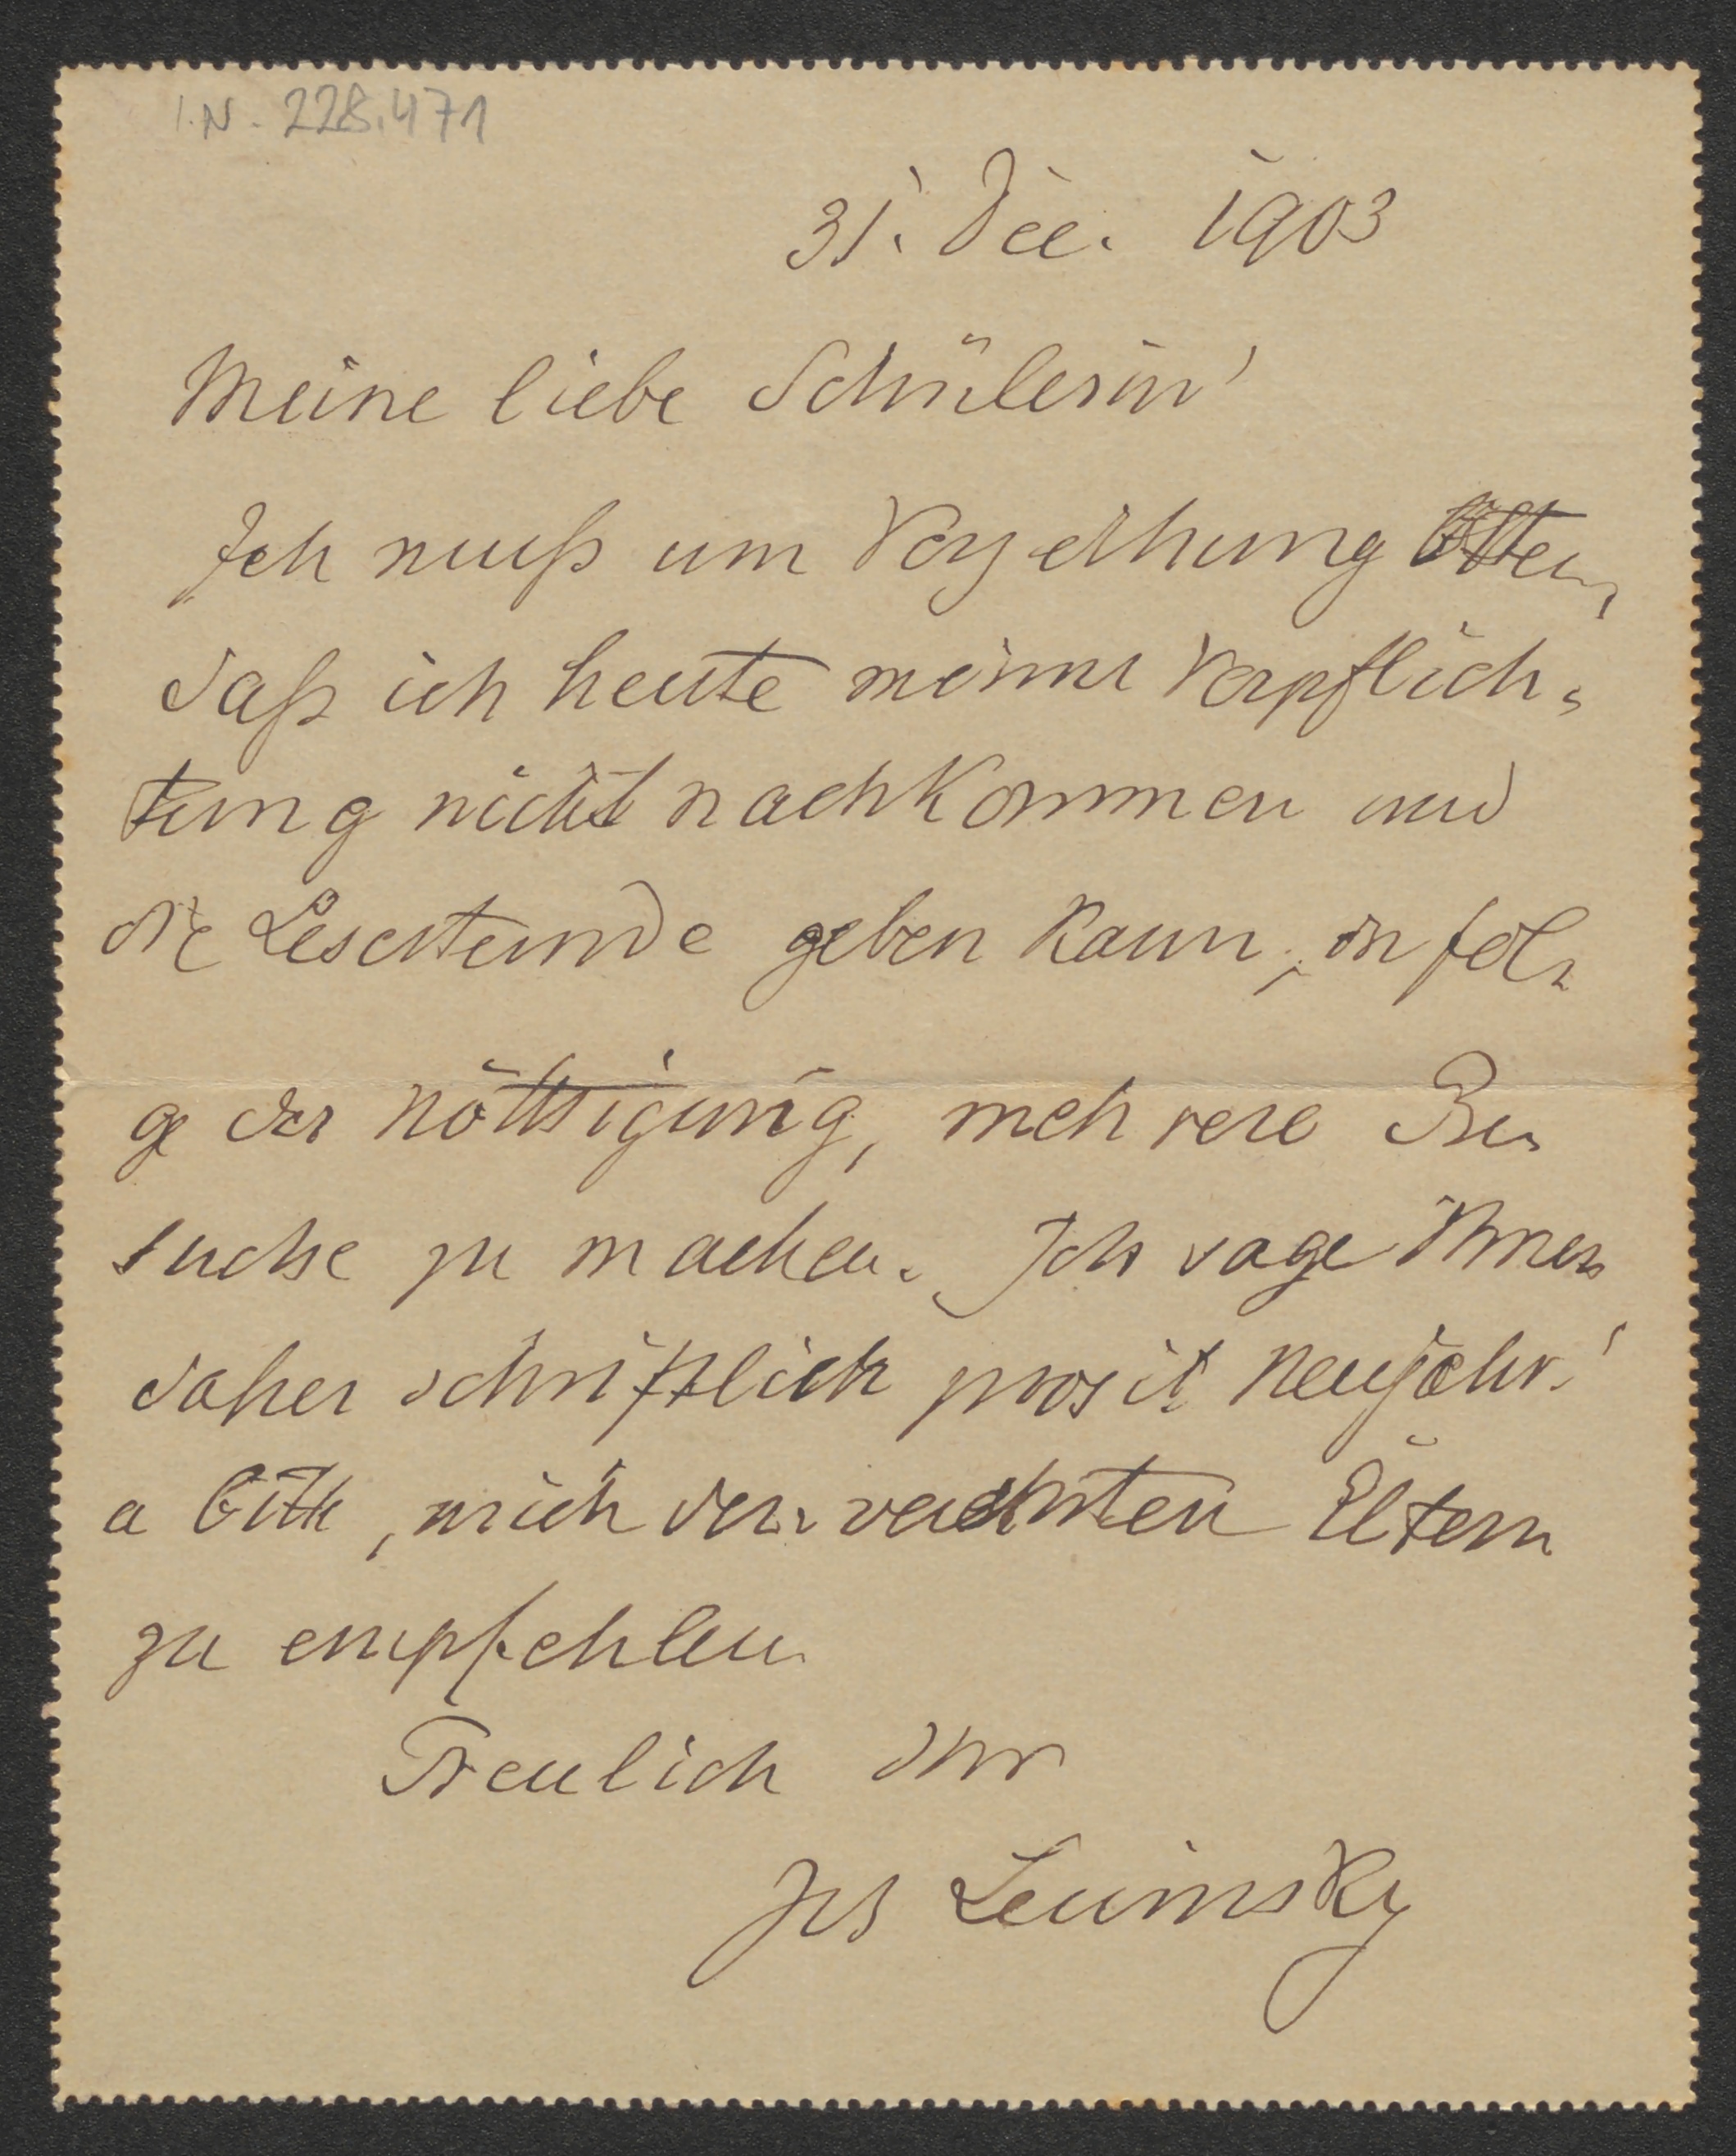 I.N. 228.471
31. Dec. 1903
Meine liebe Schülerin!
Ich muß um Verzeihung bitten,
daß ich heute meiner Verpflich-
tung nicht nachkommen und
die Lesestunde geben kann, in fol-
ge der Nöthigung, mehrere Be-
suche zu machen. Ich sage Ihnen
daher schriftlich prosit Neujahr!
u bitte, mich den verehrten Eltern
zu empfehlen.
Treulich Ihr
Jos Lewinsky